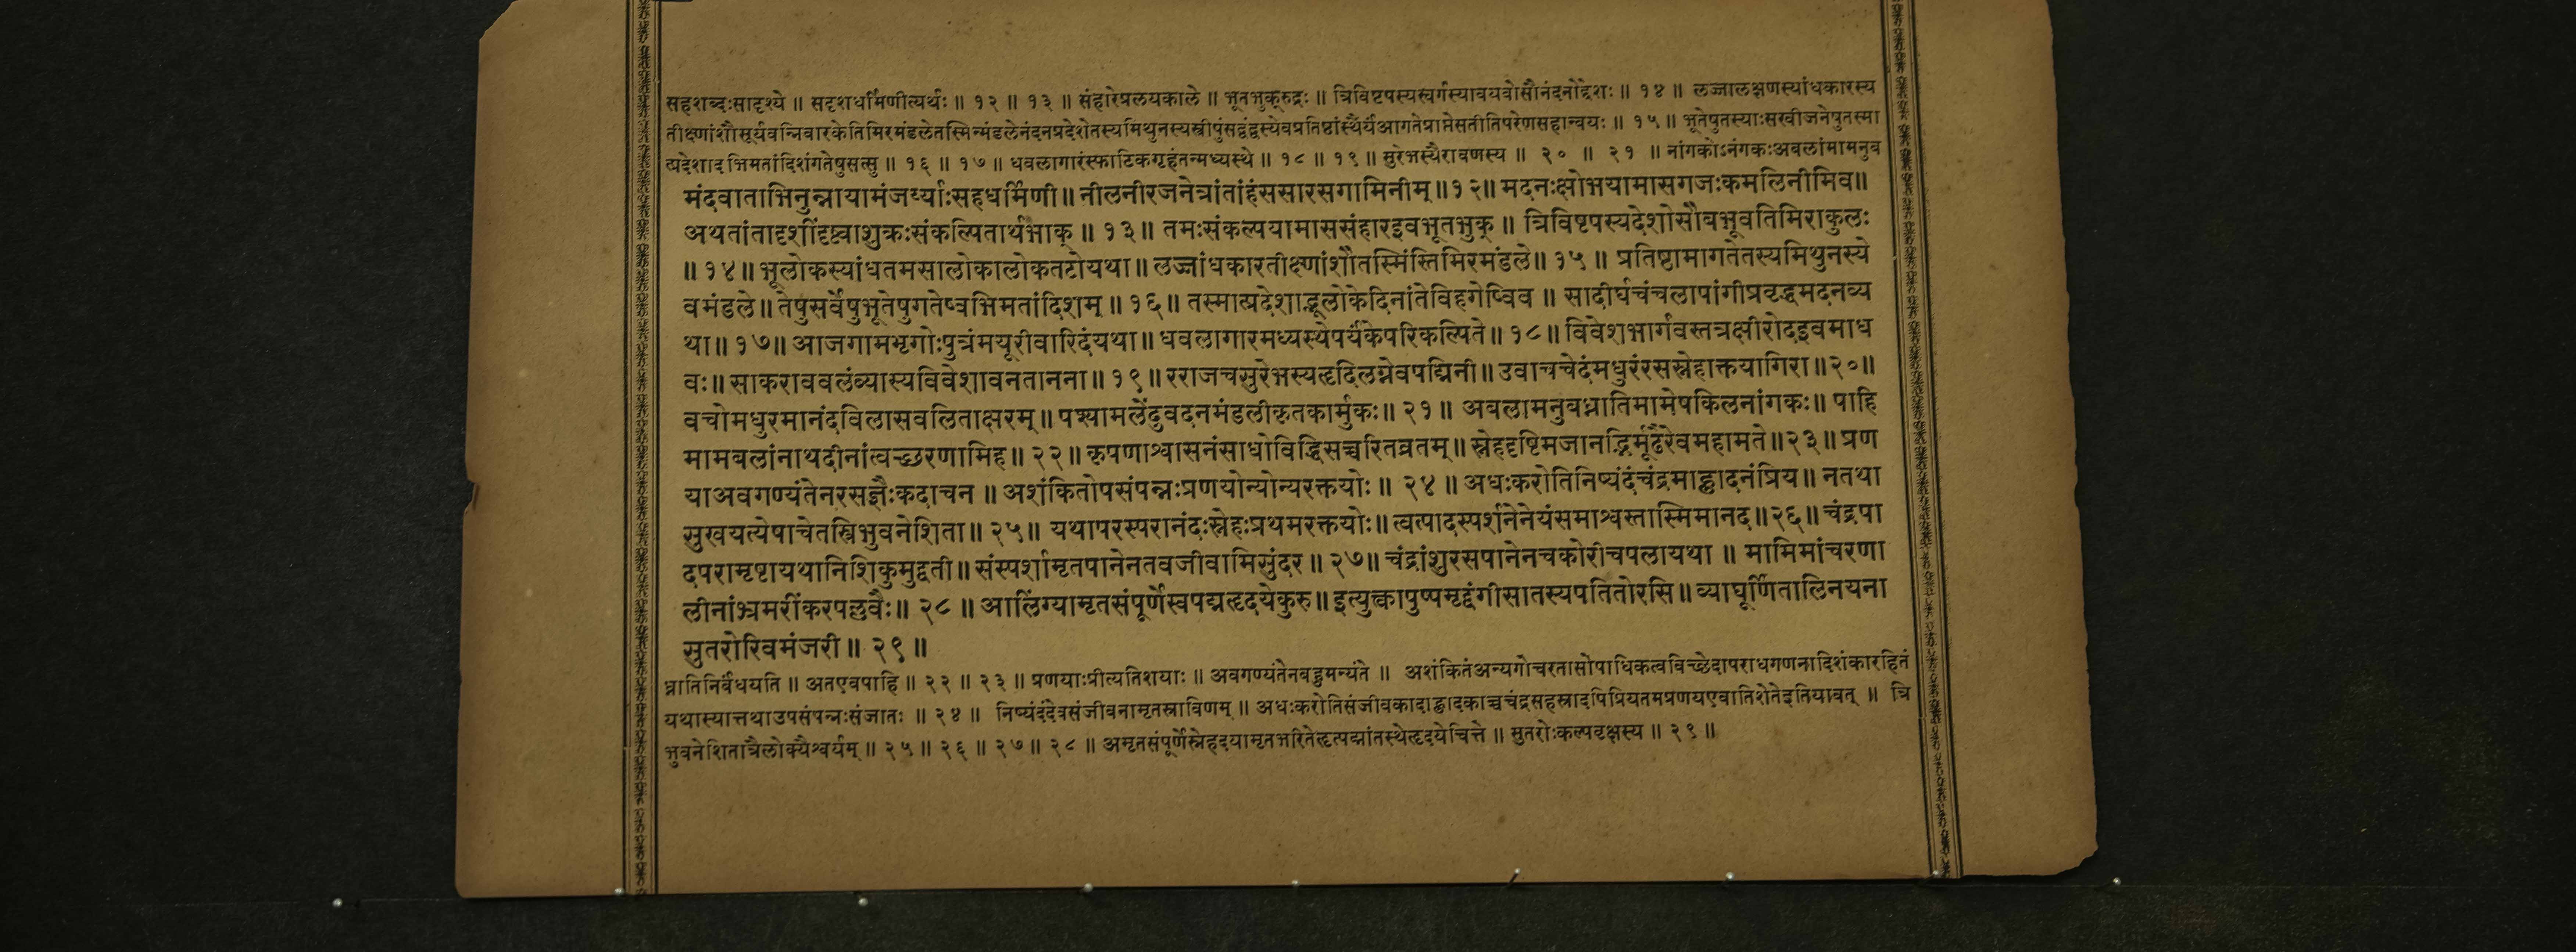 सहशब्दःसादृश्ये ॥ सदृशधर्मिणीत्यर्थः ॥ १२ ॥ १३ ॥ संहारेप्रलयकाले ॥ भूतभुक्रुद्रः ॥ त्रिविष्टपस्यस्वर्गस्यावयवोसौनंदनोद्देशः ॥ १४ ॥ लज्जालक्षणस्यांधकारस्य
तीक्ष्णांशौसूर्यवन्निवारकेतिमिरमंडलेतस्मिन्मंडलेनंदनप्रदेशेतस्यमिथुनस्यस्त्रीपुंसद्वंद्वस्येवप्रतिष्ठांस्थैर्यंआगतेप्राप्तेसतीतिपरेणसहान्वयः ॥ १५ ॥ भूतेषुतस्याःसखीजनेषुतस्मा
त्प्रदेशादभिमतांदिशंगतेषुसत्सु ॥ १६ ॥ १७ ॥ धवलागारंस्फाटिकगृहंतन्मध्यस्थे ॥ १८ ॥ १९ ॥ सुरेभस्यैरावणस्य ॥ २० ॥ २१ ॥ नांगकोऽनंगकःअबलांमामनुब
मंदवाताभिनुन्नायामंजर्य्याःसहधर्मिणी ॥ नीलनीरजनेत्रांतांहंससारसगामिनीम् ॥ १२ ॥ मदनःक्षोभयामासगजःकमलिनीमिव ॥
अथतांतादृशींदृष्ट्वाशुक्रःसंकल्पितार्थभाक् ॥ १३ ॥ तमःसंकल्पयामाससंहारइवभूतभुक् ॥ त्रिविष्टपस्यदेशोसौबभूवतिमिराकुलः
॥ १४ ॥ भूलोकस्यांधतमसालोकालोकतटोयथा ॥ लज्जांधकारतीक्ष्णांशौतस्मिंस्तिमिरमंडले ॥ १५ ॥ प्रतिष्ठामागतेतस्यमिथुनस्ये
वमंडले ॥ तेषुसर्वेषुभूतेषुगतेष्वभिमतांदिशम् ॥ १६ ॥ तस्मात्प्रदेशाद्भूलोकेदिनांतेविहगेष्विव ॥ सादीर्घचंचलापांगीप्रवृद्धमदनव्य
था ॥ १७ ॥ आजगामभृगोःपुत्रंमयूरीवारिदंयथा ॥ धवलागारमध्यस्थेपर्यंकेपरिकल्पिते ॥ १८ ॥ विवेशभार्गवस्तत्रक्षीरोदइवमाध
वः ॥ साकराववलंब्यास्यविवेशावनतानना ॥ १९ ॥ रराजचसुरेभस्यहृदिलग्नेवपद्मिनी ॥ उवाचचेदंमधुरंरसस्नेहाक्तयागिरा ॥ २० ॥
वचोमधुरमानंदविलासवलिताक्षरम् ॥ पश्यामलेंदुवदनमंडलीकृतकार्मुकः ॥ २१ ॥ अबलामनुबध्नातिमामेषकिलनांगकः ॥ पाहि
मामबलांनाथदीनांत्वच्छरणामिह ॥ २२ ॥ कृपणाश्वासनंसाधोविद्धिसच्चरितव्रतम् ॥ स्नेहदृष्टिमजानद्भिर्मूढैरेवमहामते ॥ २३ ॥ प्रण
याअवगण्यंतेनरसज्ञैःकदाचन ॥ अशंकितोपसंपन्नःप्रणयोन्योन्यरक्तयोः ॥ २४ ॥ अधःकरोतिनिष्यंदंचंद्रमाह्लादनंप्रिय ॥ नतथा
सुखयत्येषाचेतस्त्रिभुवनेशिता ॥ २५ ॥ यथापरस्परानंदःस्नेहःप्रथमरक्तयोः ॥ त्वत्पादस्पर्शनेनेयंसमाश्वस्तास्मिमानद ॥ २६ ॥ चंद्रपा
दपरामृष्टायथानिशिकुमुद्वती ॥ संस्पर्शामृतपानेनतवजीवामिसुंदर ॥ २७ ॥ चंद्रांशुरसपानेनचकोरीचपलायथा ॥ मामिमांचरणा
लीनांभ्रमरींकरपल्लवैः ॥ २८ ॥ आलिंग्यामृतसंपूर्णेस्वपद्महृदयेकुरु ॥ इत्युक्त्वापुष्पमृद्वंगीसातस्यपतितोरसि ॥ व्याघूर्णितालिनयना
सुतरोरिवमंजरी ॥ २९ ॥
ध्नातिनिर्बंधयति ॥ अतएवपाहि ॥ २२ ॥ २३ ॥ प्रणयाःप्रीत्यतिशयाः ॥ अवगण्यंतेनबहुमन्यंते ॥ अशंकितंअन्यगोचरतासोपाधिकत्वविच्छेदापराधगणनादिशंकारहितं
यथास्यात्तथाउपसंपन्नःसंजातः ॥ २४ ॥ निष्यंदंदेवसंजीवनामृतस्राविणम् ॥ अधःकरोतिसंजीवकादाह्लादकाच्चचंद्रसहस्रादपिप्रियतमप्रणयएवातिशेतेइतियावत् ॥ त्रि
भुवनेशितात्रैलोक्यैश्वर्यम् ॥ २५ ॥ २६ ॥ २७ ॥ २८ ॥ अमृतसंपूर्णेस्नेहदयामृतभरितेहृत्पद्मांतस्थेहृदयेचित्ते ॥ सुतरोःकल्पवृक्षस्य ॥ २९ ॥